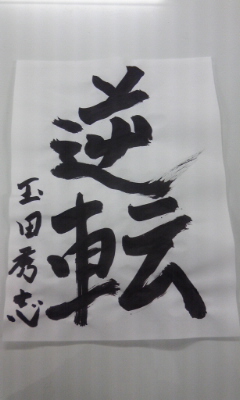 逆転
玉田秀志